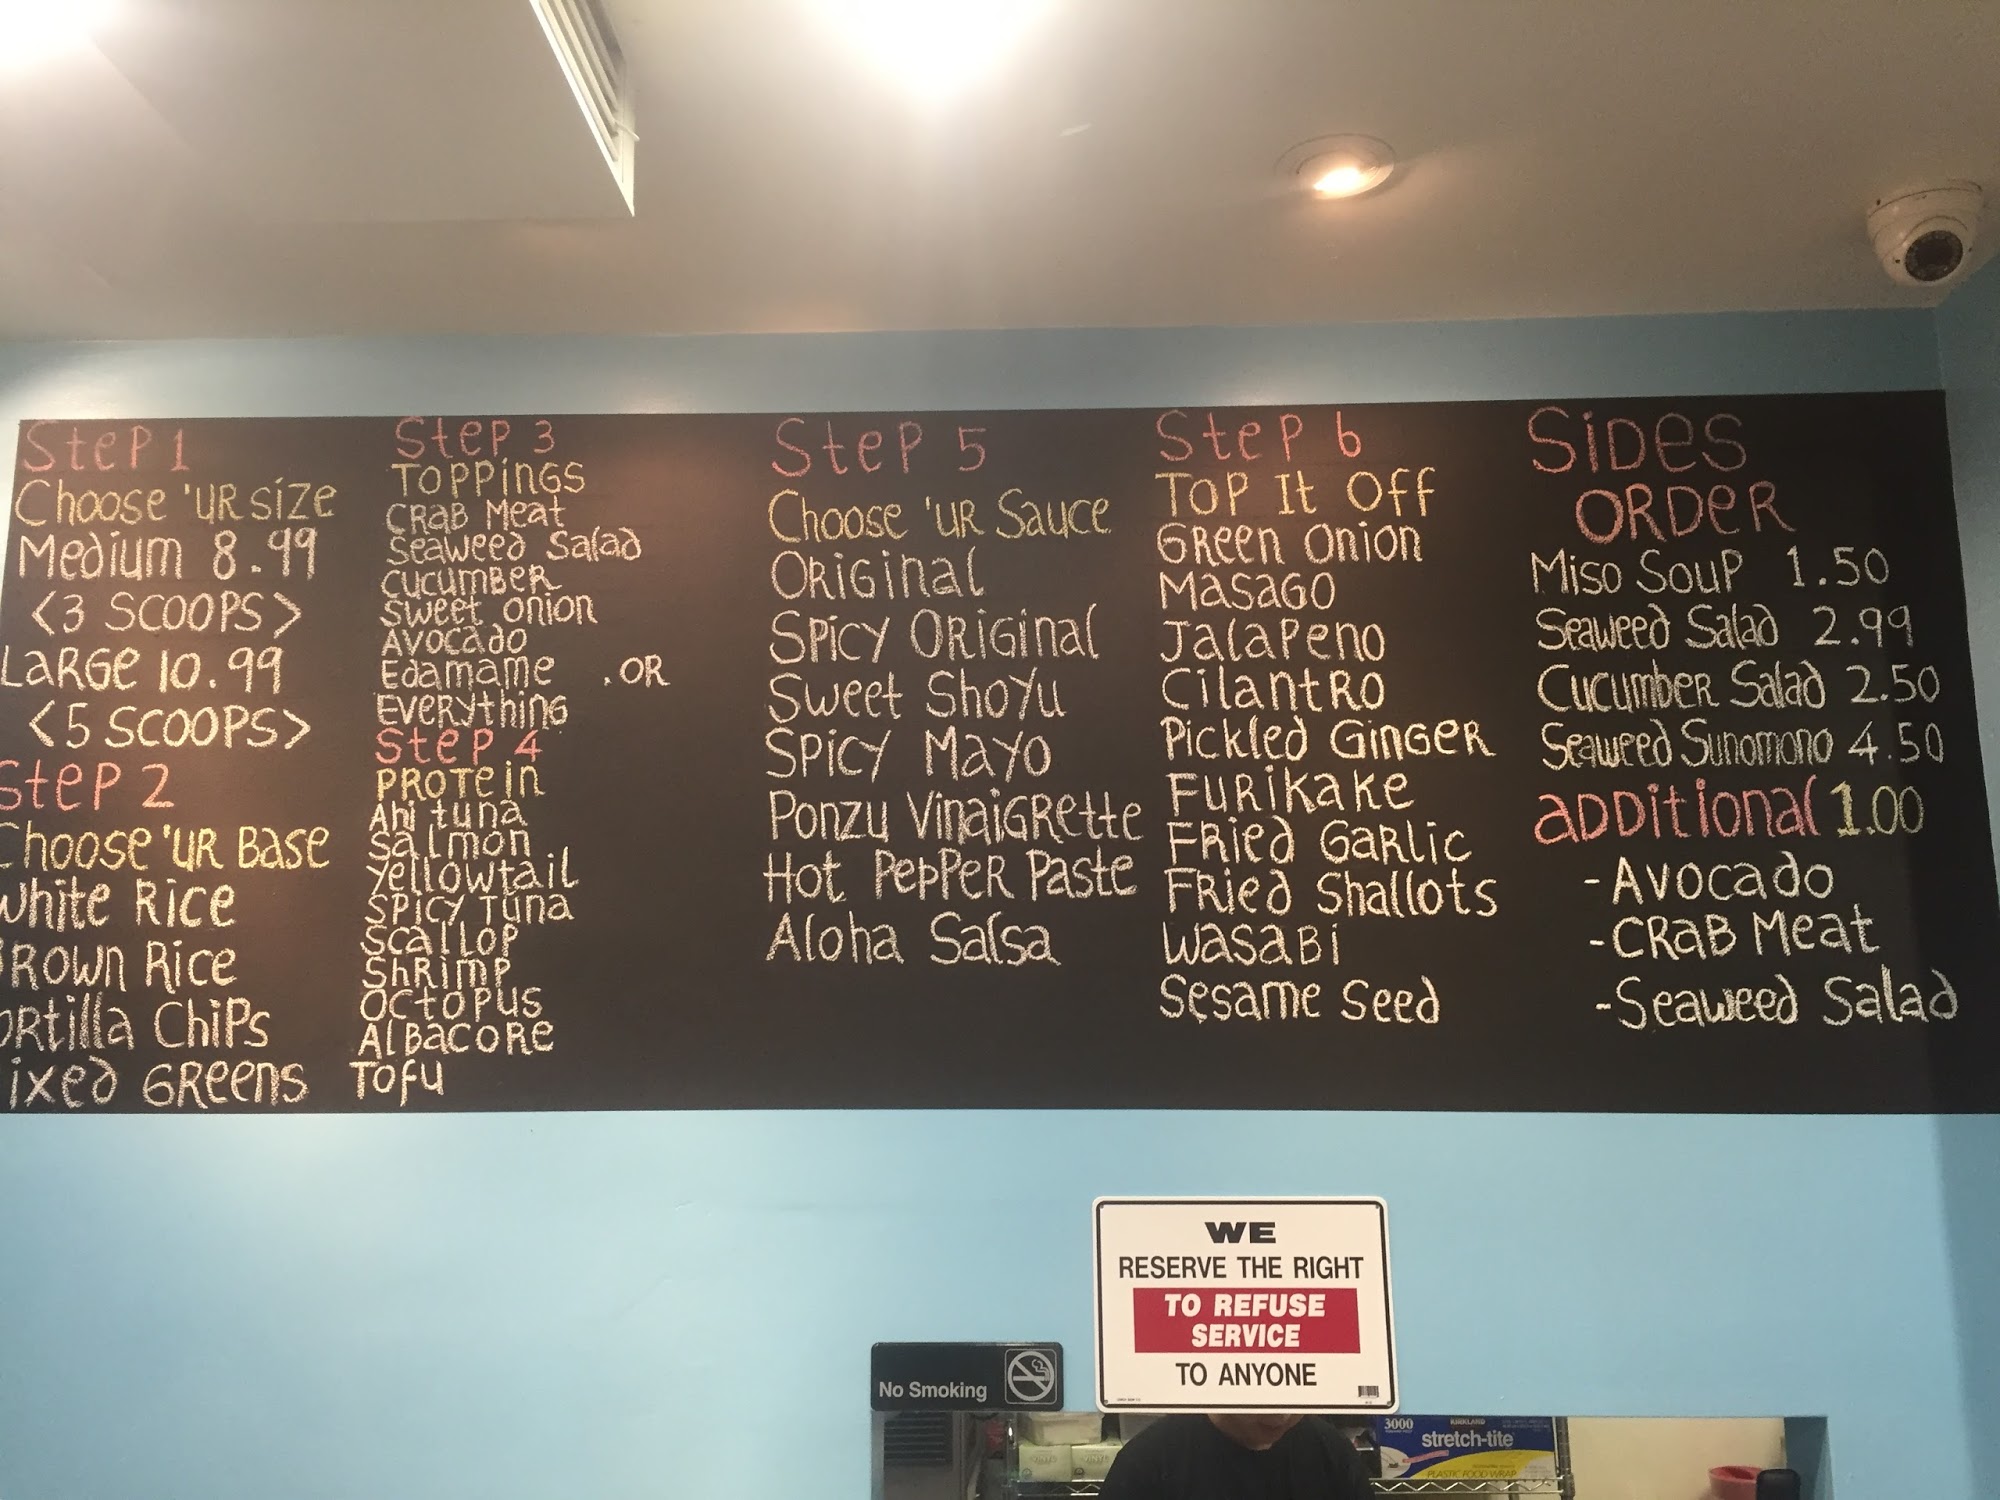 Step 1
Choose 'ur size
Medium 8.99
<3 scoops>
Large 10.99
<5 scoops>
Step 2
Choose 'ur Base
White Rice
Brown Rice
ortilla Chips
ixed Greens
Step 3
Toppings
Crab Meat
Seaweed Salad
Cucumber
Sweet onion
Avocado
Edamame .OR
Everything
Step 4
Protein
Ahi tuna
Salmon
Yellowtail
Spicy Tuna
Scallop
Shrimp
Octopus
Albacore
Tofu
Step 5
Choose 'ur Sauce
Original
Spicy Original
Sweet Shoyu
Spicy Mayo
Ponzu Vinaigrette
Hot Pepper Paste
Aloha Salsa
Step 6
Top It Off
Green Onion
Masago
Jalapeno
Cilantro
Pickled Ginger
Furikake
Fried Garlic
Fried Shallots
Wasabi
Sesame Seed
Sides
Order
Miso Soup 1.50
Seaweed Salad 2.99
Cucumber Salad 2.50
Seaweed Sunomono 4.50
Additional 1.00
-Avocado
-Crab Meat
-Seaweed Salad
WE
RESERVE THE RIGHT
TO REFUSE
SERVICE
TO ANYONE
No Smoking
3000
KIRKLAND
stretch-tite
PLASTIC FOOD WRAP